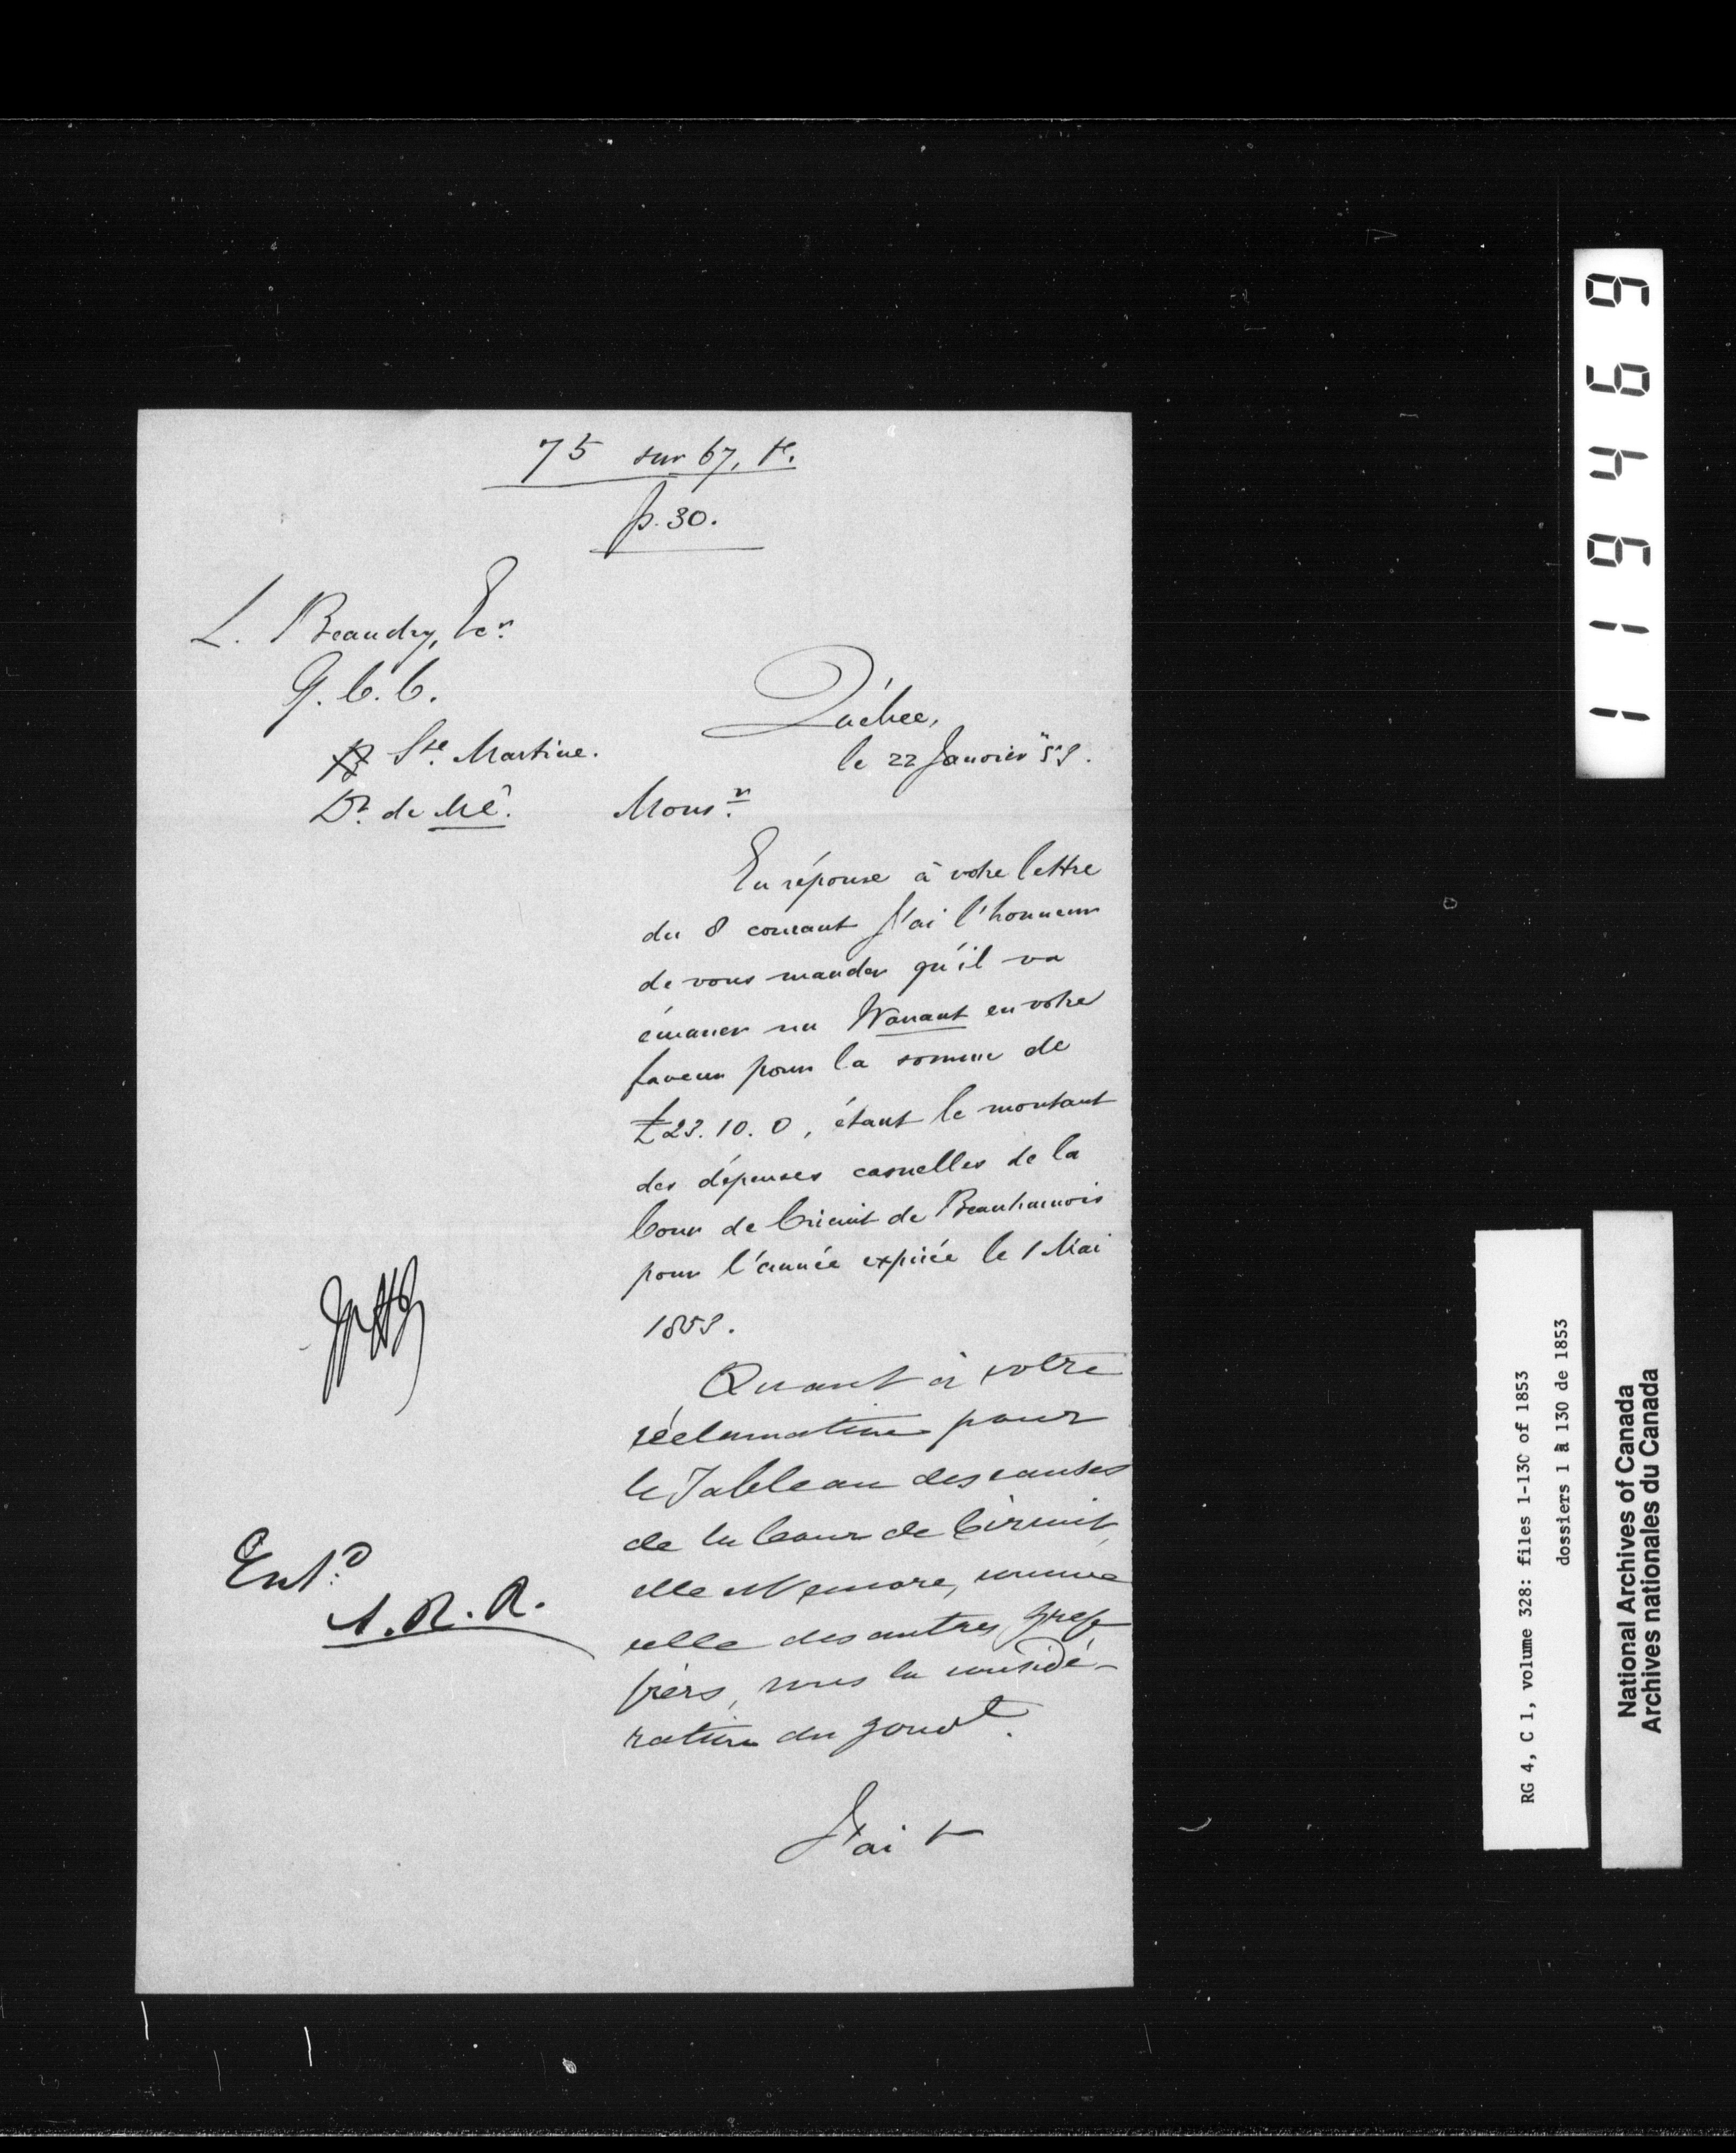 75 sur 67, &c.
p. 30.
L. Beaudry, Ecr.
G. C. C.
Ste. Martine.
Dt. de Ml.
Québec,
le 22 Janvier "53.
Monsr.
En réponse à votre lettre
du 8 courant J'ai l'honneur
de vous mander qu'il va
émaner un Warrant en votre
faveur pour la somme de
£23. 10. 0, étant le montant
des dépenses casuelles de la
Cour de Circuit de Beauharnois
pour l'année expirée le 1 Mai
1853.
Quant à votre
réclamation pour
le Tableau des causes
de la Cour de Circuit
elle est encore, comme
celle des autres Gref
fiers, sous la considé-
ration du gouvt.
J'ai &
Entd.
A. R. R.
119469
RG 4, C 1, volume 328: files 1-130 of 1853
dossiers 1 à 130 de 1853
National Archives of Canada
Archives nationales du Canada